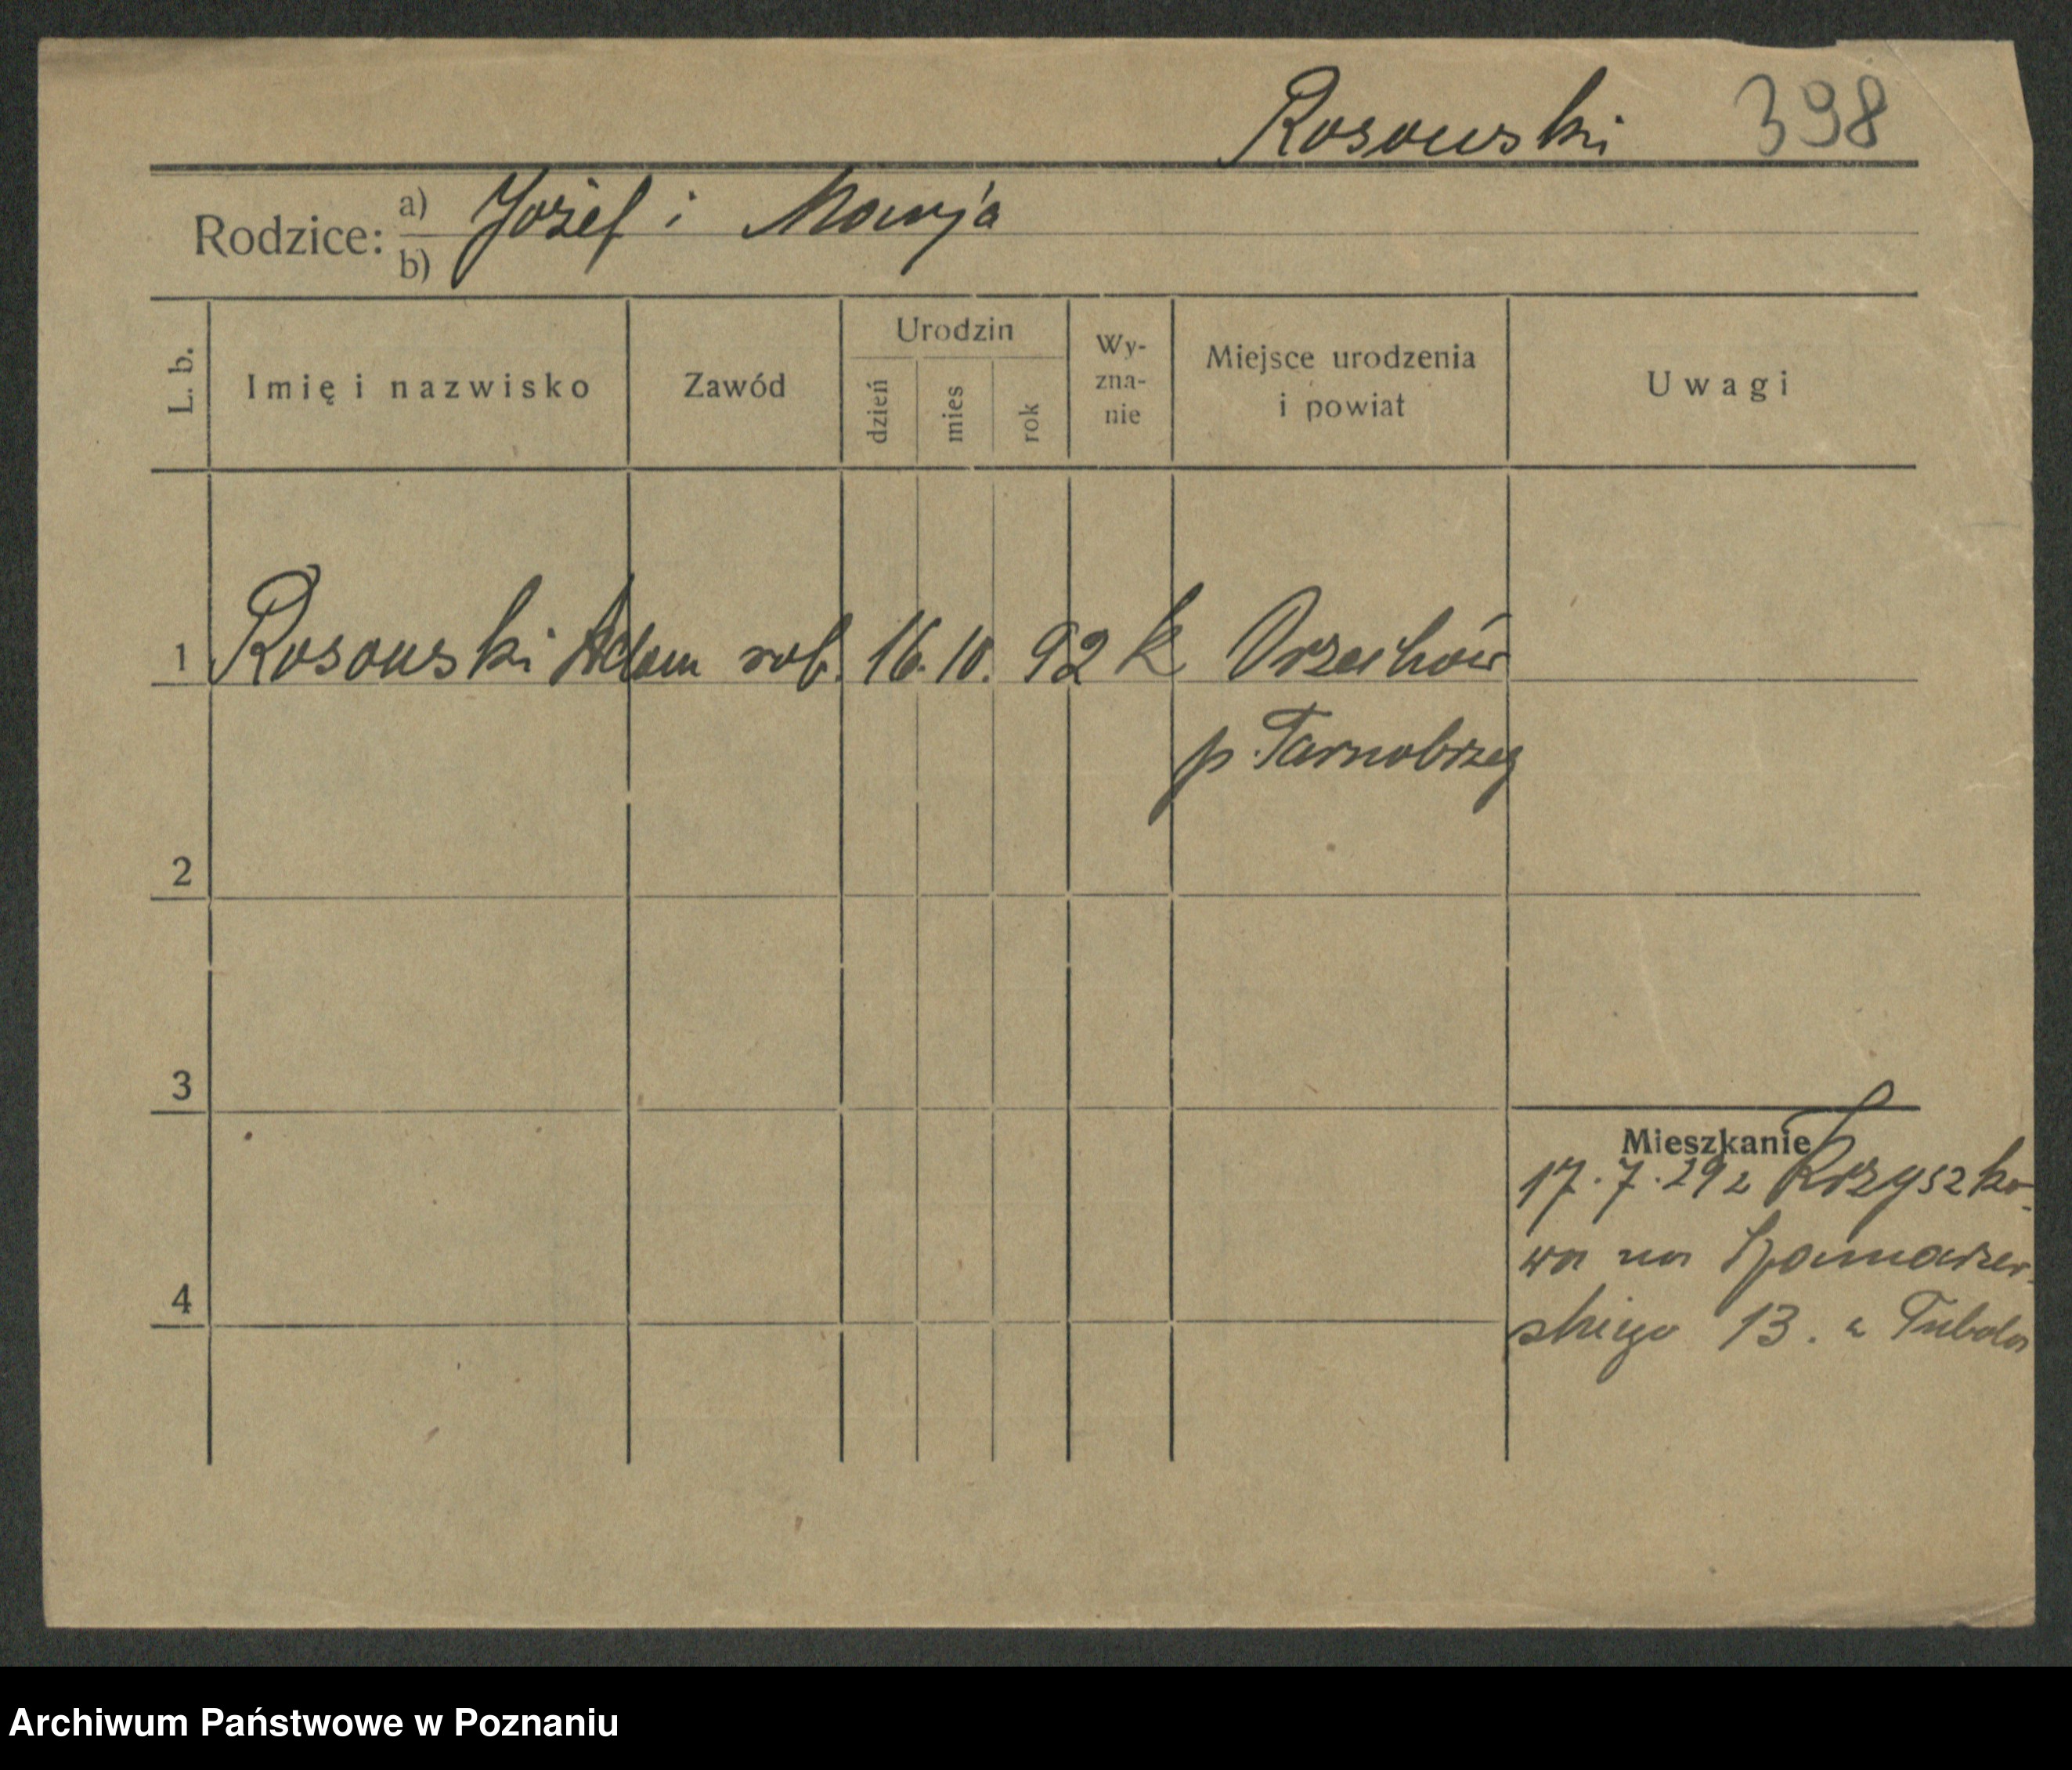 Rosowski 398
Rodzice: a) Józef i Marja
b)
L. b. Imię i nazwisko Zawód Urodzin dzień mies rok Wy-zna-nie Miejsce urodzenia i powiat Uwagi
1 Rosowski Adam rob. 16. 10. 92 k Orzechów
p. Tarnobrzeg
2
3
Mieszkanie
17.7.29 z Krzyszko-
wa na
4
skiego 13. u
Archiwum Państwowe w Poznaniu